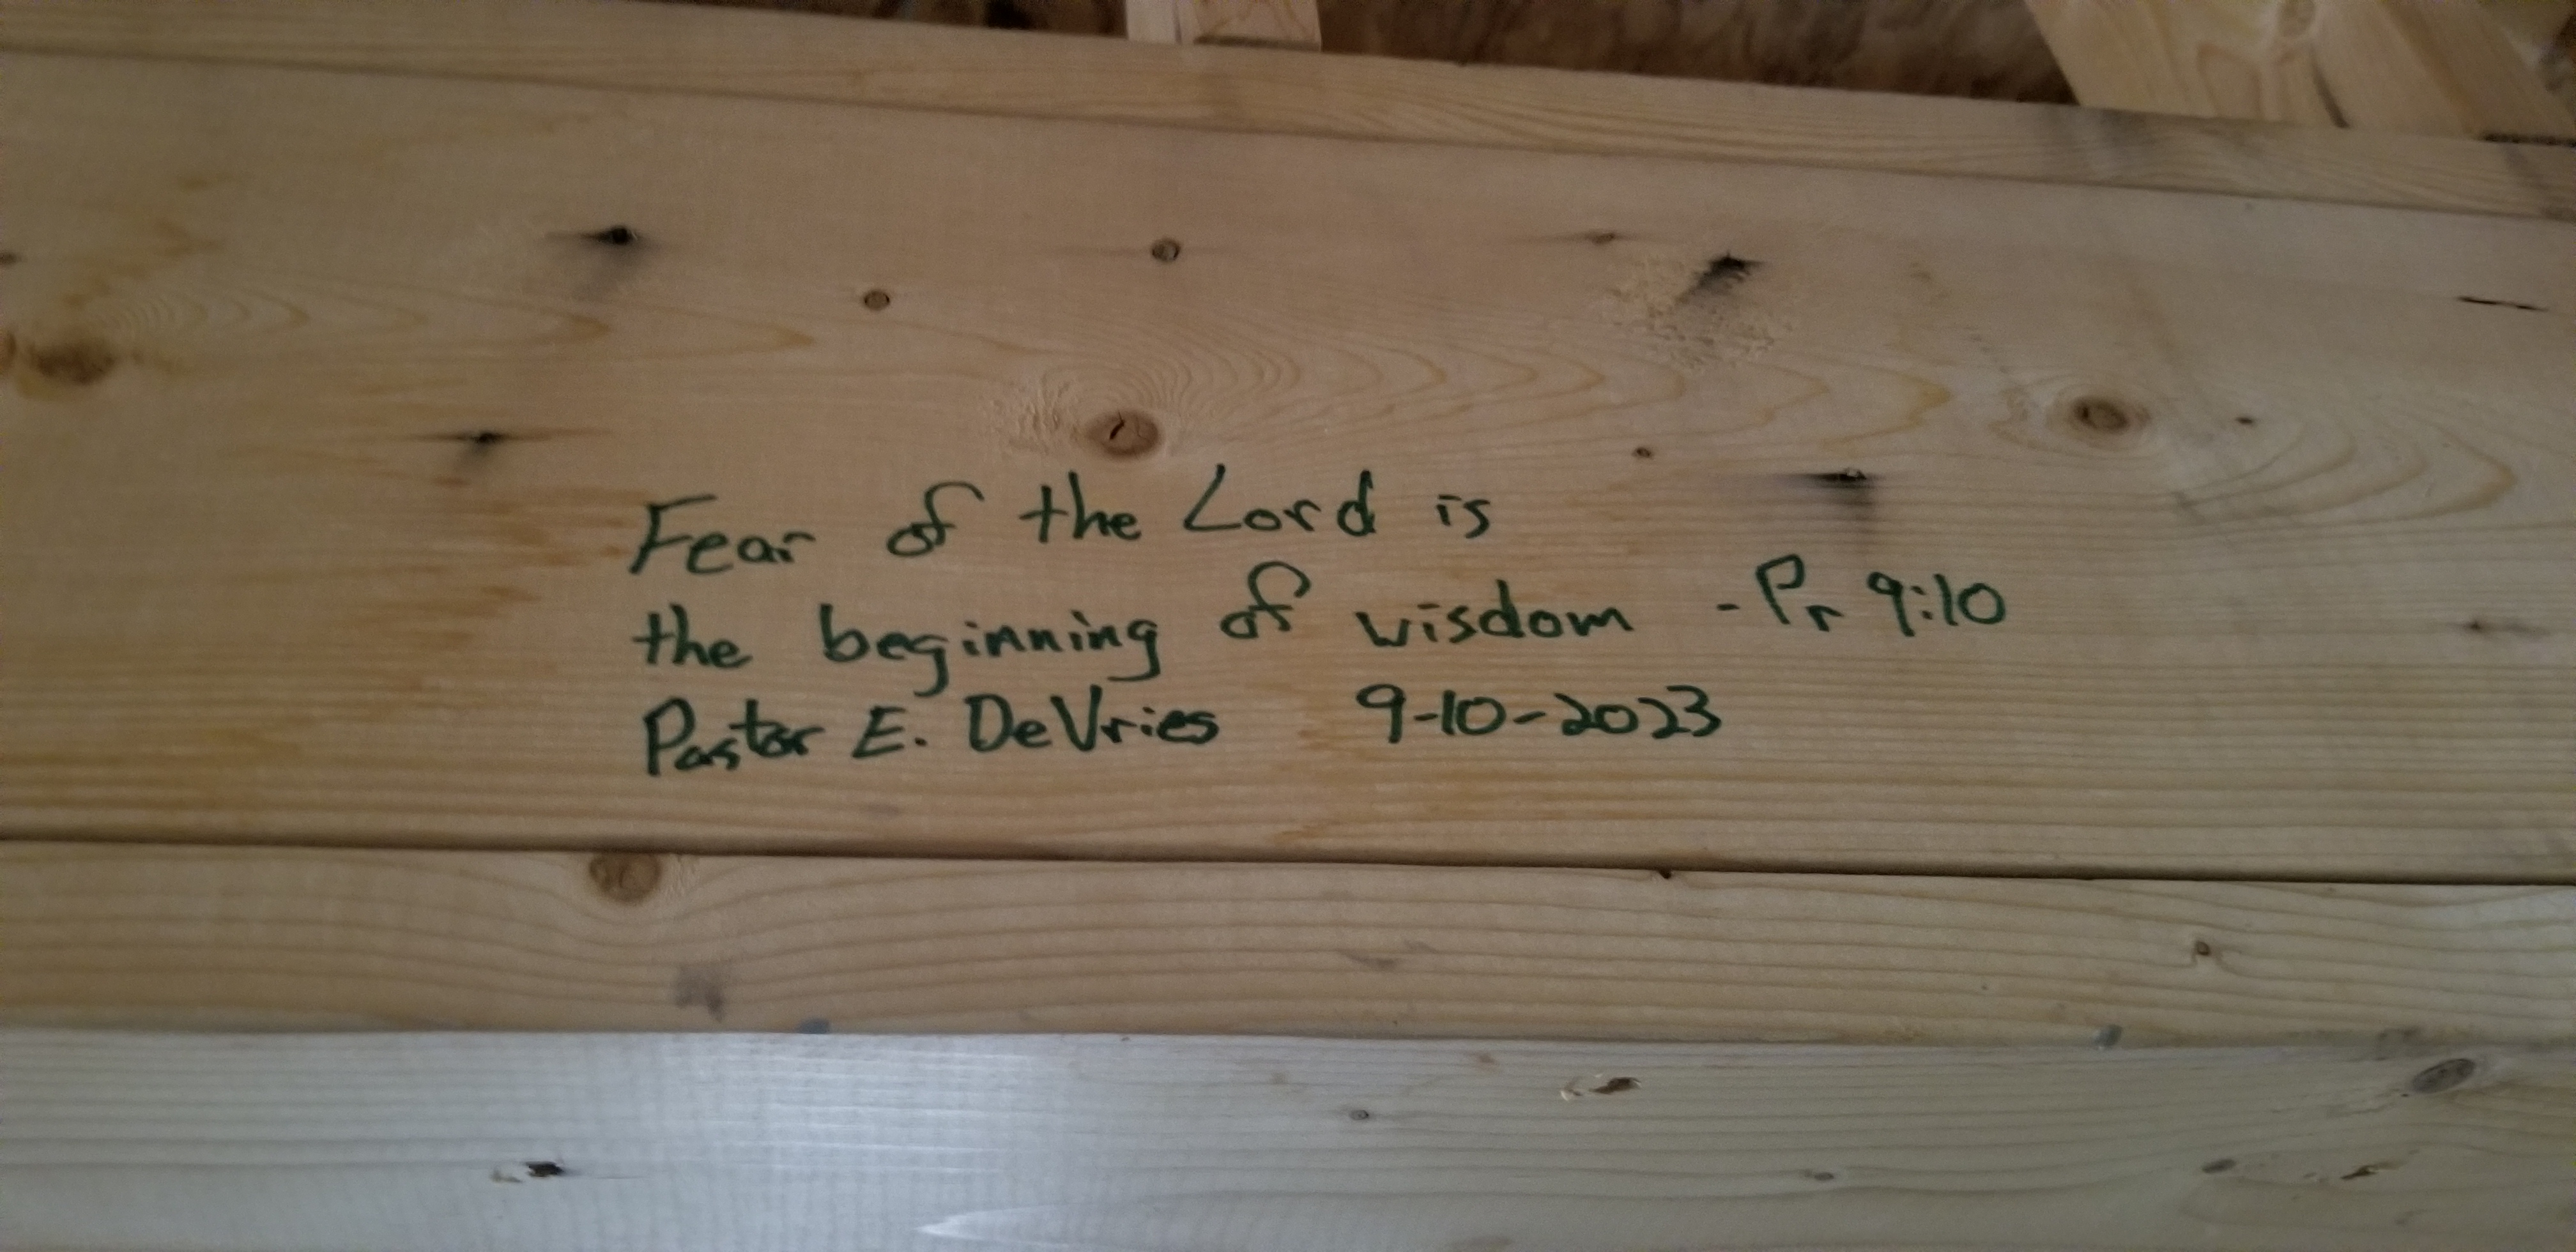 Fear of the Lord is
the beginning of wisdom - Pr 9:10
Pastor E. DeVries 9-10-2023